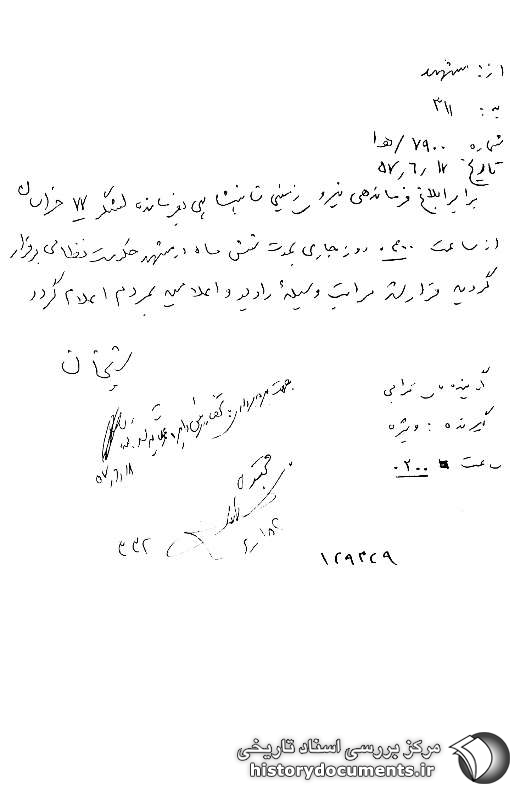 از: مشهد
به: ۳۱۱
شماره ۷۹۰۰/ هدا
تاریخ ۵۷٫۶٫۱۷
برابر ابلاغ فرماندهی نیروی زمینی شاهنشاهی بفرمانده لشگر ۷۷ خراسان
از ساعت ۰۶۰۰ روز جاری بمدت شش ماه در مشهد حکومت نظامی برقرار
گردیده قرار شد مراتب وسیله رادیو و اعلامیه بمردم اعلام گردد
شیخان
گوینده
گیرنده: ویژه
ساعت ۰۲۰۰
جهت
۵۷٫۶٫۱۸
۶٫۱۸
۳۳۲
۱۲۹۳۲۹
مرکز بررسی اسناد تاریخی
historydocuments.ir